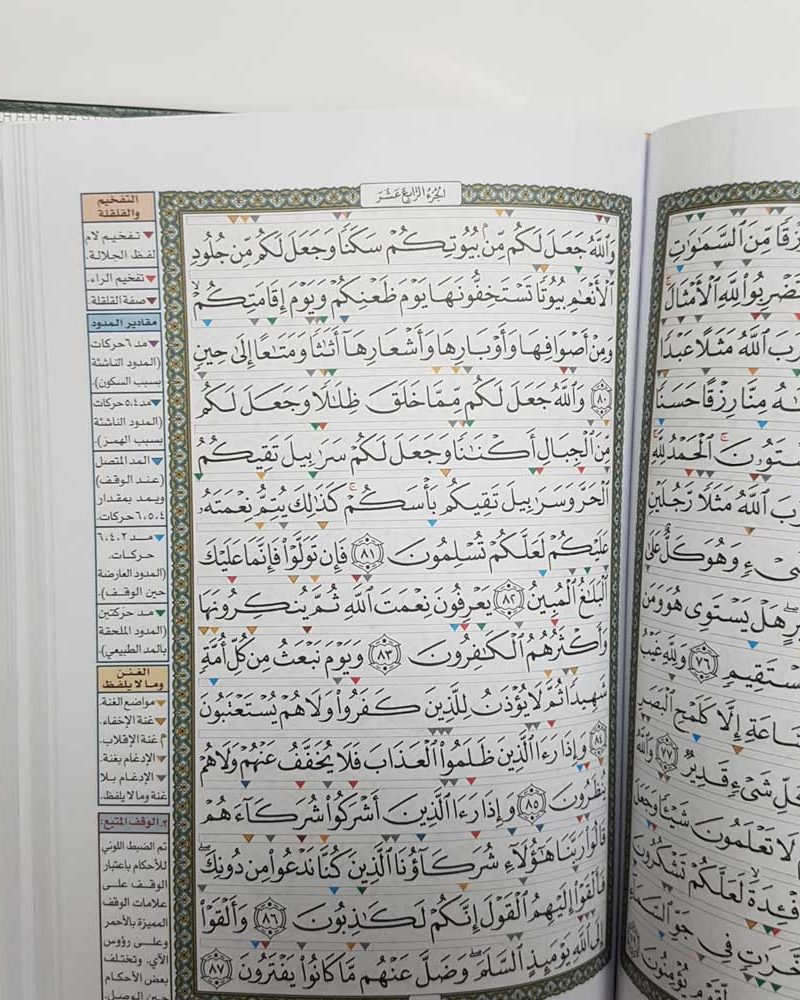 الجزء الرابع عشر
وَاللَّهُ جَعَلَ لَكُم مِّنۢ بُيُوتِكُمْ سَكَنًا وَجَعَلَ لَكُم مِّن جُلُودِ
الْأَنْعَٰمِ بُيُوتًا تَسْتَخِفُّونَهَا يَوْمَ ظَعْنِكُمْ وَيَوْمَ إِقَامَتِكُمْ ۙ
وَمِنْ أَصْوَافِهَا وَأَوْبَارِهَا وَأَشْعَارِهَآ أَثَٰثًا وَمَتَٰعًا إِلَىٰ حِينٍ
٨٠ وَاللَّهُ جَعَلَ لَكُم مِّمَّا خَلَقَ ظِلَٰلًا وَجَعَلَ لَكُم
مِّنَ الْجِبَالِ أَكْنَٰنًا وَجَعَلَ لَكُمْ سَرَٰبِيلَ تَقِيكُمُ
الْحَرَّ وَسَرَٰبِيلَ تَقِيكُم بَأْسَكُمْ ۚ كَذَٰلِكَ يُتِمُّ نِعْمَتَهُۥ
عَلَيْكُمْ لَعَلَّكُمْ تُسْلِمُونَ ٨١ فَإِن تَوَلَّوْا۟ فَإِنَّمَا عَلَيْكَ
الْبَلَٰغُ الْمُبِينُ ٨٢ يَعْرِفُونَ نِعْمَتَ اللَّهِ ثُمَّ يُنكِرُونَهَا
وَأَكْثَرُهُمُ الْكَٰفِرُونَ ٨٣ وَيَوْمَ نَبْعَثُ مِن كُلِّ أُمَّةٍ
شَهِيدًا ثُمَّ لَا يُؤْذَنُ لِلَّذِينَ كَفَرُوا۟ وَلَا هُمْ يُسْتَعْتَبُونَ
٨٤ وَإِذَا رَءَا الَّذِينَ ظَلَمُوا۟ الْعَذَابَ فَلَا يُخَفَّفُ عَنْهُمْ وَلَا هُمْ
يُنظَرُونَ ٨٥ وَإِذَا رَءَا الَّذِينَ أَشْرَكُوا۟ شُرَكَآءَهُمْ
قَالُوا۟ رَبَّنَا هَٰٓؤُلَآءِ شُرَكَآؤُنَا الَّذِينَ كُنَّا نَدْعُوا۟ مِن دُونِكَ ۖ
فَأَلْقَوْا۟ إِلَيْهِمُ الْقَوْلَ إِنَّكُمْ لَكَٰذِبُونَ ٨٦ وَأَلْقَوْا۟
إِلَى اللَّهِ يَوْمَئِذٍ السَّلَمَ ۖ وَضَلَّ عَنْهُم مَّا كَانُوا۟ يَفْتَرُونَ ٨٧
التفخيم
والقلقلة
تفخيم لام
لفظ الجلالة.
تفخيم الراء.
صفة القلقلة.
مقادير المدود
مد ٦ حركات
(المدود الناشئة
بسبب السكون).
مد ٤،٥ حركات
(المدود الناشئة
بسبب الهمز).
المد المتصل
(عند الوقف)
ويمد بمقدار
٤،٥،٦ حركات.
مد ٢،٤،٦
حركات.
(المدود العارضة
حين الوقف).
مد حركتين
(المدود الملحقة
بالمد الطبيعي).
الغنن
وما لا يلفظ
مواضع الغنة.
غنة الإخفاء.
م غنة الإقلاب.
الإدغام بغنة.
الإدغام بلا
غنة وما لا يلفظ.
٢. الوقف المتبع:
تم الضبط اللوني
للأحكام باعتبار
الوقف على
علامات الوقف
المميزة بالأحمر
وعلى رؤوس
الآي. وتختلف
بعض الأحكام
حين الوصل.
مِّنَ السَّمَٰوَٰتِ
تَضْرِبُوا۟ لِلَّهِ الْأَمْثَالَ ۚ
اللَّهُ مَثَلًا عَبْدًا
مِنَّا رِزْقًا حَسَنًا
الْحَمْدُ لِلَّهِ ۚ
اللَّهُ مَثَلًا رَّجُلَيْنِ
وَهُوَ كَلٌّ عَلَىٰ
هَلْ يَسْتَوِي هُوَ وَمَن
٧٦ وَلِلَّهِ غَيْبُ
إِلَّا كَلَمْحِ الْبَصَرِ
شَيْءٍ قَدِيرٌ ٧٧ وَاللَّهُ
لَا تَعْلَمُونَ شَيْئًا وَجَعَلَ
لَعَلَّكُمْ تَشْكُرُونَ
فِي جَوِّ